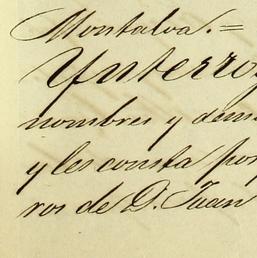 Montalva.=
Ynterro
nombres y dem
y les consta por
ros de D. Juan